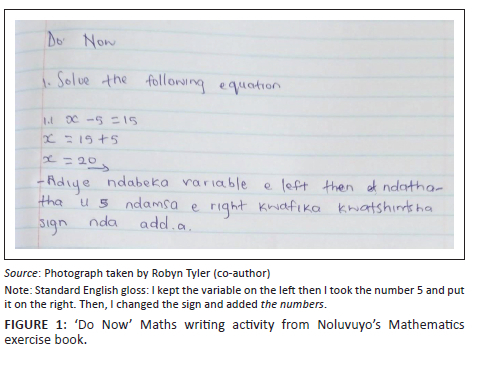 Do Now
1. Solve the following equation
1.1 x - 5 = 15
x = 15 + 5
x = 20
- Adiye ndabeka variable e left then ndatha-
tha u 5 ndamsa e right kwafika kwatshintsha
sign nda add.a.
Source: Photograph taken by Robyn Tyler (co-author)
Note: Standard English gloss: I kept the variable on the left then I took the number 5 and put
it on the right. Then, I changed the sign and added the numbers.
FIGURE 1: ‘Do Now’ Maths writing activity from Noluvuyo’s Mathematics
exercise book.